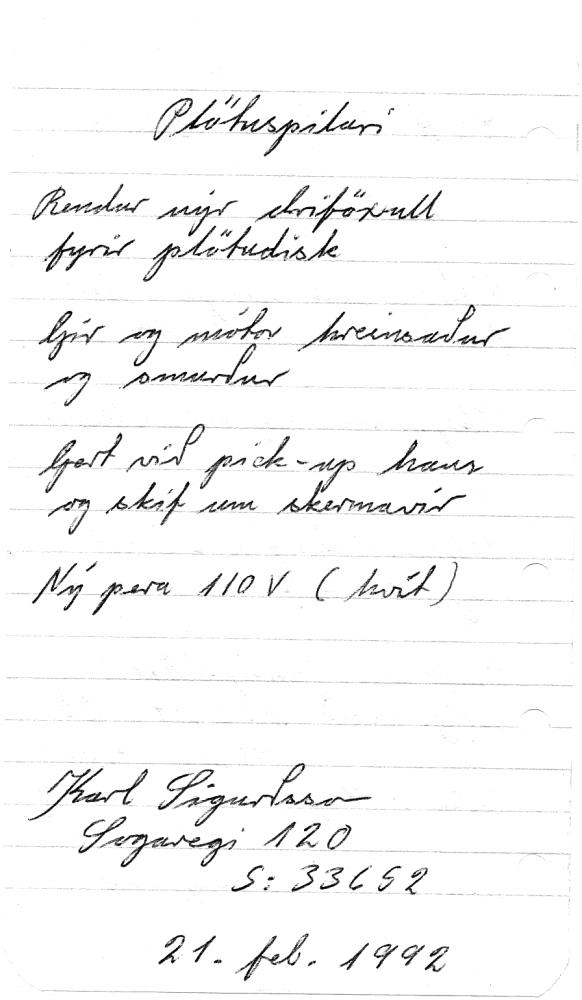 Plötuspilari
Rendur nýr driföxull
fyrir plötudisk
Gír og mótor hreinsaður
og smurður
Gert við pick-up haus
og skift um skermavír
Ný pera 110 V (hvít)
Karl Sigurðsson
Sogavegi 120
S: 33652
21. feb. 1992